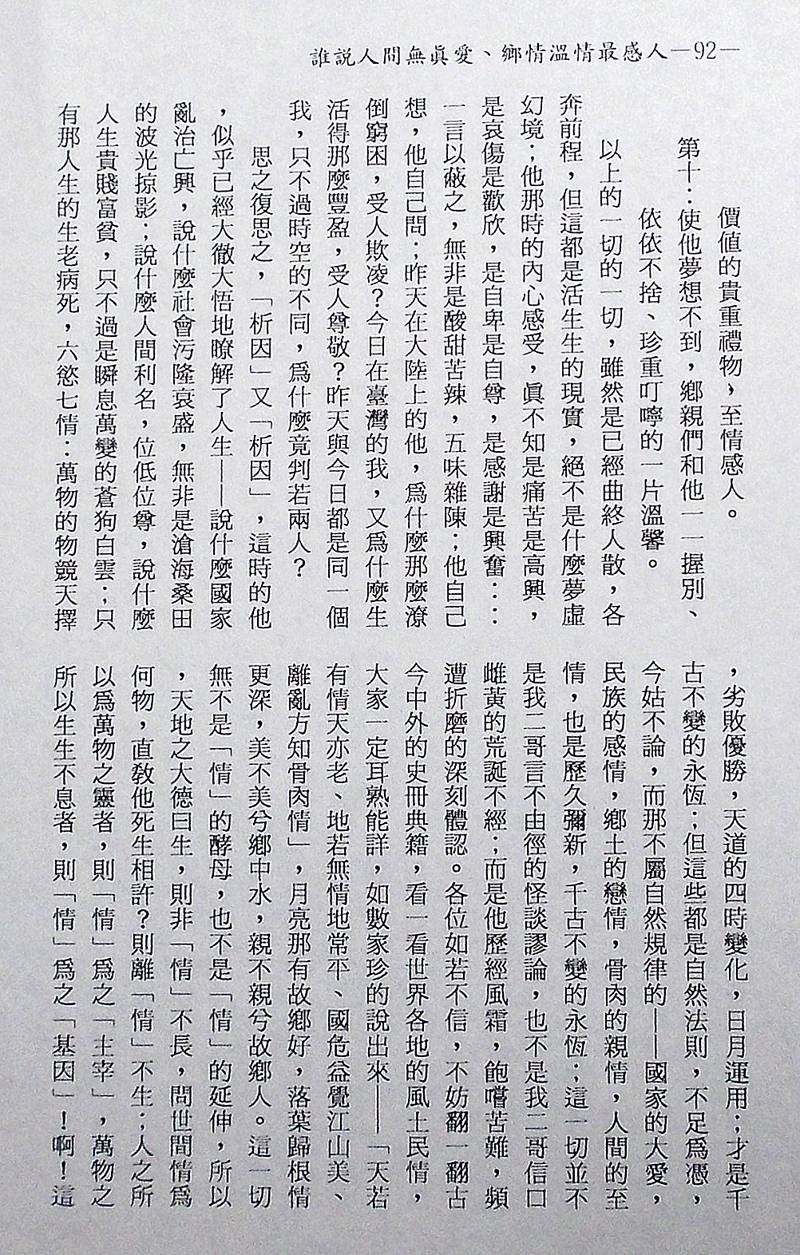 誰說人間無眞愛、鄉情溫情最感人—92—
價值的貴重禮物，至情感人。
第十：使他夢想不到，鄉親們和他一一握別、
依依不捨、珍重叮嚀的一片溫馨。
以上的一切的一切，雖然是已經曲終人散，各
奔前程，但這都是活生生的現實，絕不是什麼夢虛
幻境；他那時的內心感受，眞不知是痛苦是高興，
是哀傷是歡欣，是自卑是自尊，是感謝是興奮……
一言以蔽之，無非是酸甜苦辣，五味雜陳；他自己
想，他自己問；昨天在大陸上的他，爲什麼那麼潦
倒窮困，受人欺凌？今日在臺灣的我，又爲什麼生
活得那麼豐盈，受人尊敬？昨天與今日都是同一個
我，只不過時空的不同，爲什麼竟判若兩人？
思之復思之，「析因」又「析因」，這時的他
，似乎已經大徹大悟地瞭解了人生——說什麼國家
亂治亡興，說什麼社會污隆衰盛，無非是滄海桑田
的波光掠影；說什麼人間利名，位低位尊，說什麼
人生貴賤富貧，只不過是瞬息萬變的蒼狗白雲；只
有那人生的生老病死，六慾七情：萬物的物競天擇
，劣敗優勝，天道的四時變化，日月運用；才是千
古不變的永恆；但這些都是自然法則，不足爲憑，
今姑不論，而那不屬自然規律的——國家的大愛，
民族的感情，鄉土的戀情，骨肉的親情，人間的至
情，也是歷久彌新，千古不變的永恆；這一切並不
是我二哥言不由徑的怪談謬論，也不是我二哥信口
雌黃的荒誕不經；而是他歷經風霜，飽嚐苦難，頻
遭折磨的深刻體認。各位如若不信，不妨翻一翻古
今中外的史冊典籍，看一看世界各地的風土民情，
大家一定耳熟能詳，如數家珍的說出來——「天若
有情天亦老、地若無情地常平、國危益覺江山美、
離亂方知骨肉情」，月亮那有故鄉好，落葉歸根情
更深，美不美兮鄉中水，親不親兮故鄉人。這一切
無不是「情」的酵母，也不是「情」的延伸，所以
，天地之大德曰生，則非「情」不長，問世間情爲
何物，直敎他死生相許？則離「情」不生；人之所
以爲萬物之靈者，則「情」爲之「主宰」，萬物之
所以生生不息者，則「情」爲之「基因」！啊！這